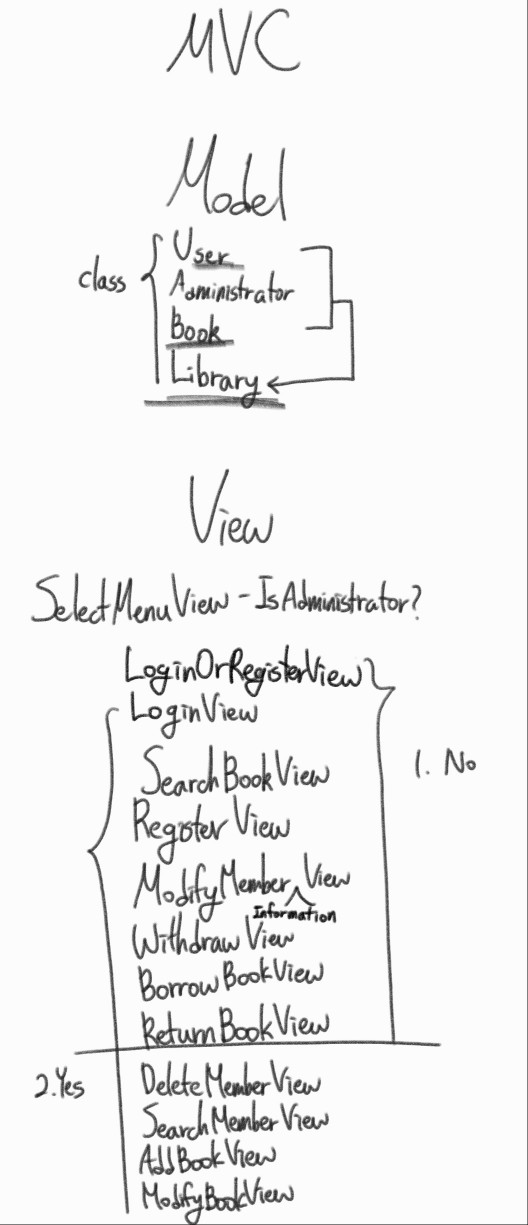 MVC
Model
class
User
Administrator
Book
Library
View
SelectMenuView - IsAdministrator?
LoginOrRegisterView
LoginView
1. No
SearchBookView
Register View
ModifyMember View
Information
Withdraw View
BorrowBookView
ReturnBookView
2. Yes
DeleteMemberView
SearchMemberView
AddBookView
ModifyBookView